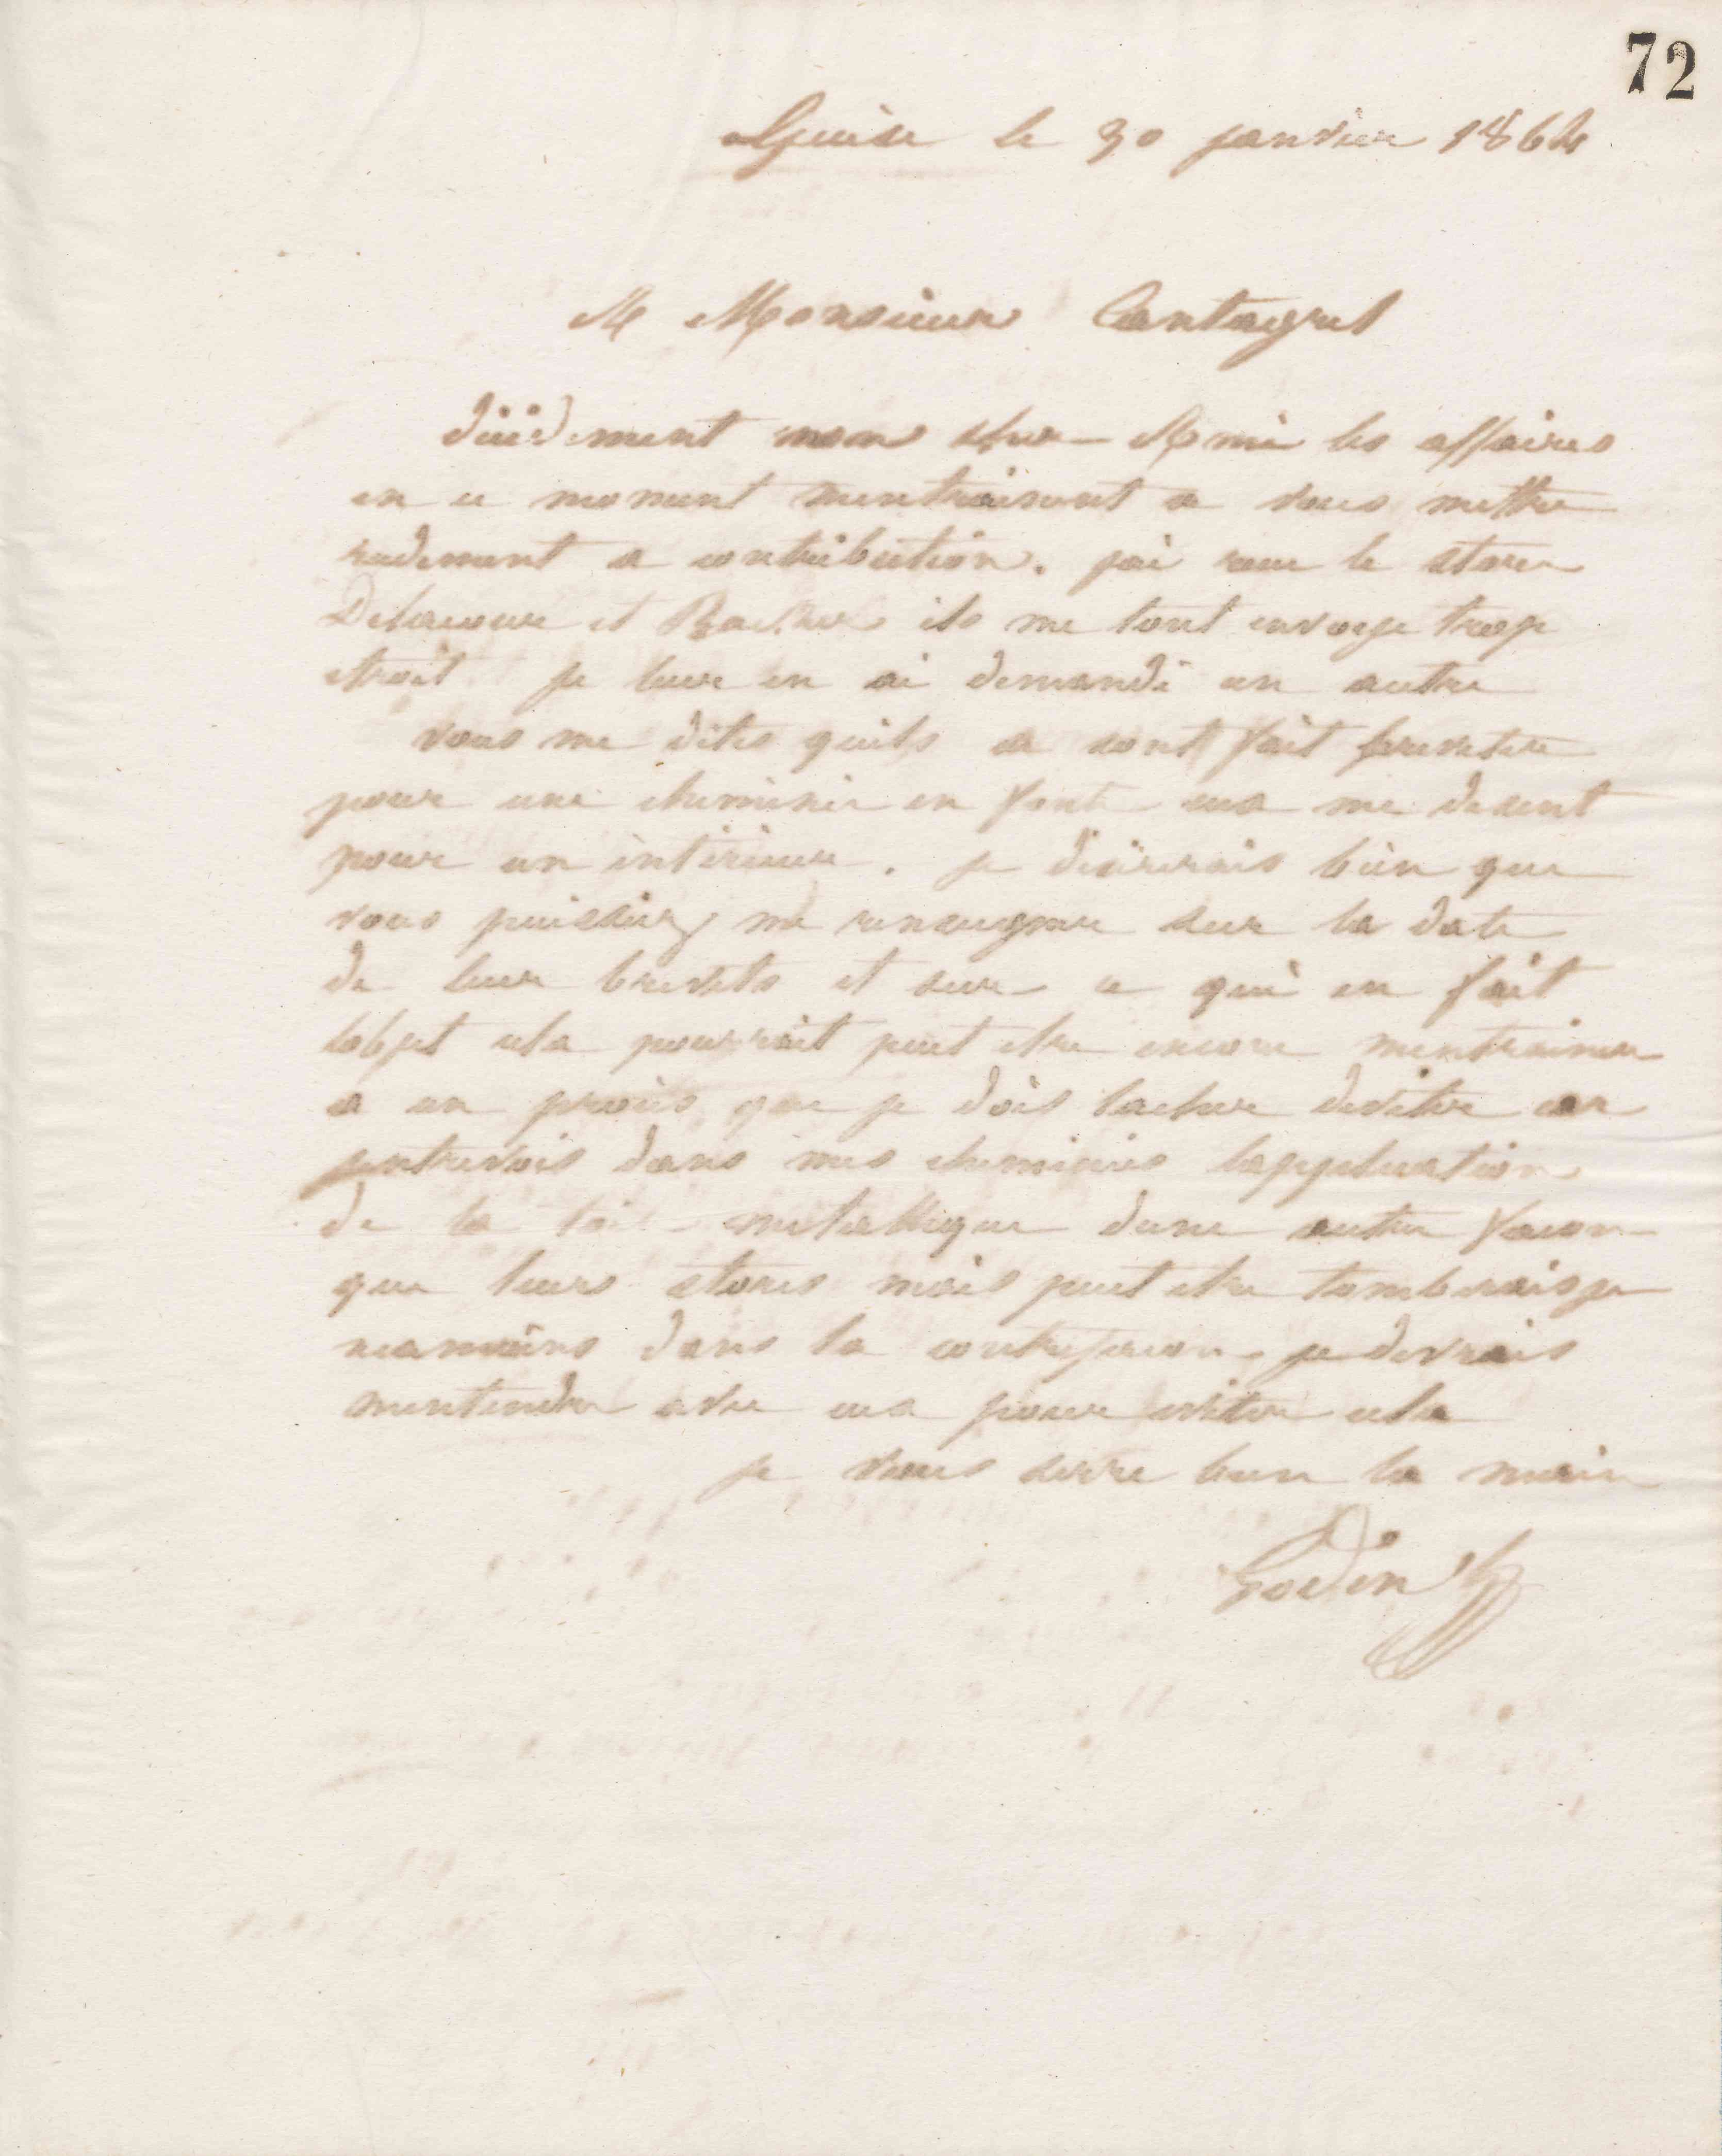 72
Guise le 30 janvier 1864
A Monsieur Cantagrel
décidement mon cher Ami les affaires
en ce moment mentrainent a vous mettre
rudement a contribution. jai recu le store
Delacour et ils me lont envoye trop
etroit je leur en ai demandé un autre
vous me dites quils se sont fait breveter
pour une cheminée en fonte eux me disent
pour un intérieur. je désirerais bien que
vous puissiez me renseigner sur la date
de leur brevets et sur ce qui en fait
lobjet cela pourrait peut etre encore mentrainer
a un procès que je dois tacher deviter car
jentrevois dans mes cheminées lapplication
de la toile metallique dune autre facon
que leurs stores mais peut etre tomberaisje
neanmoins dans la contrefacon je devrais
mentendre avec eux pour eviter cela
je vous serre bien la main
Godin